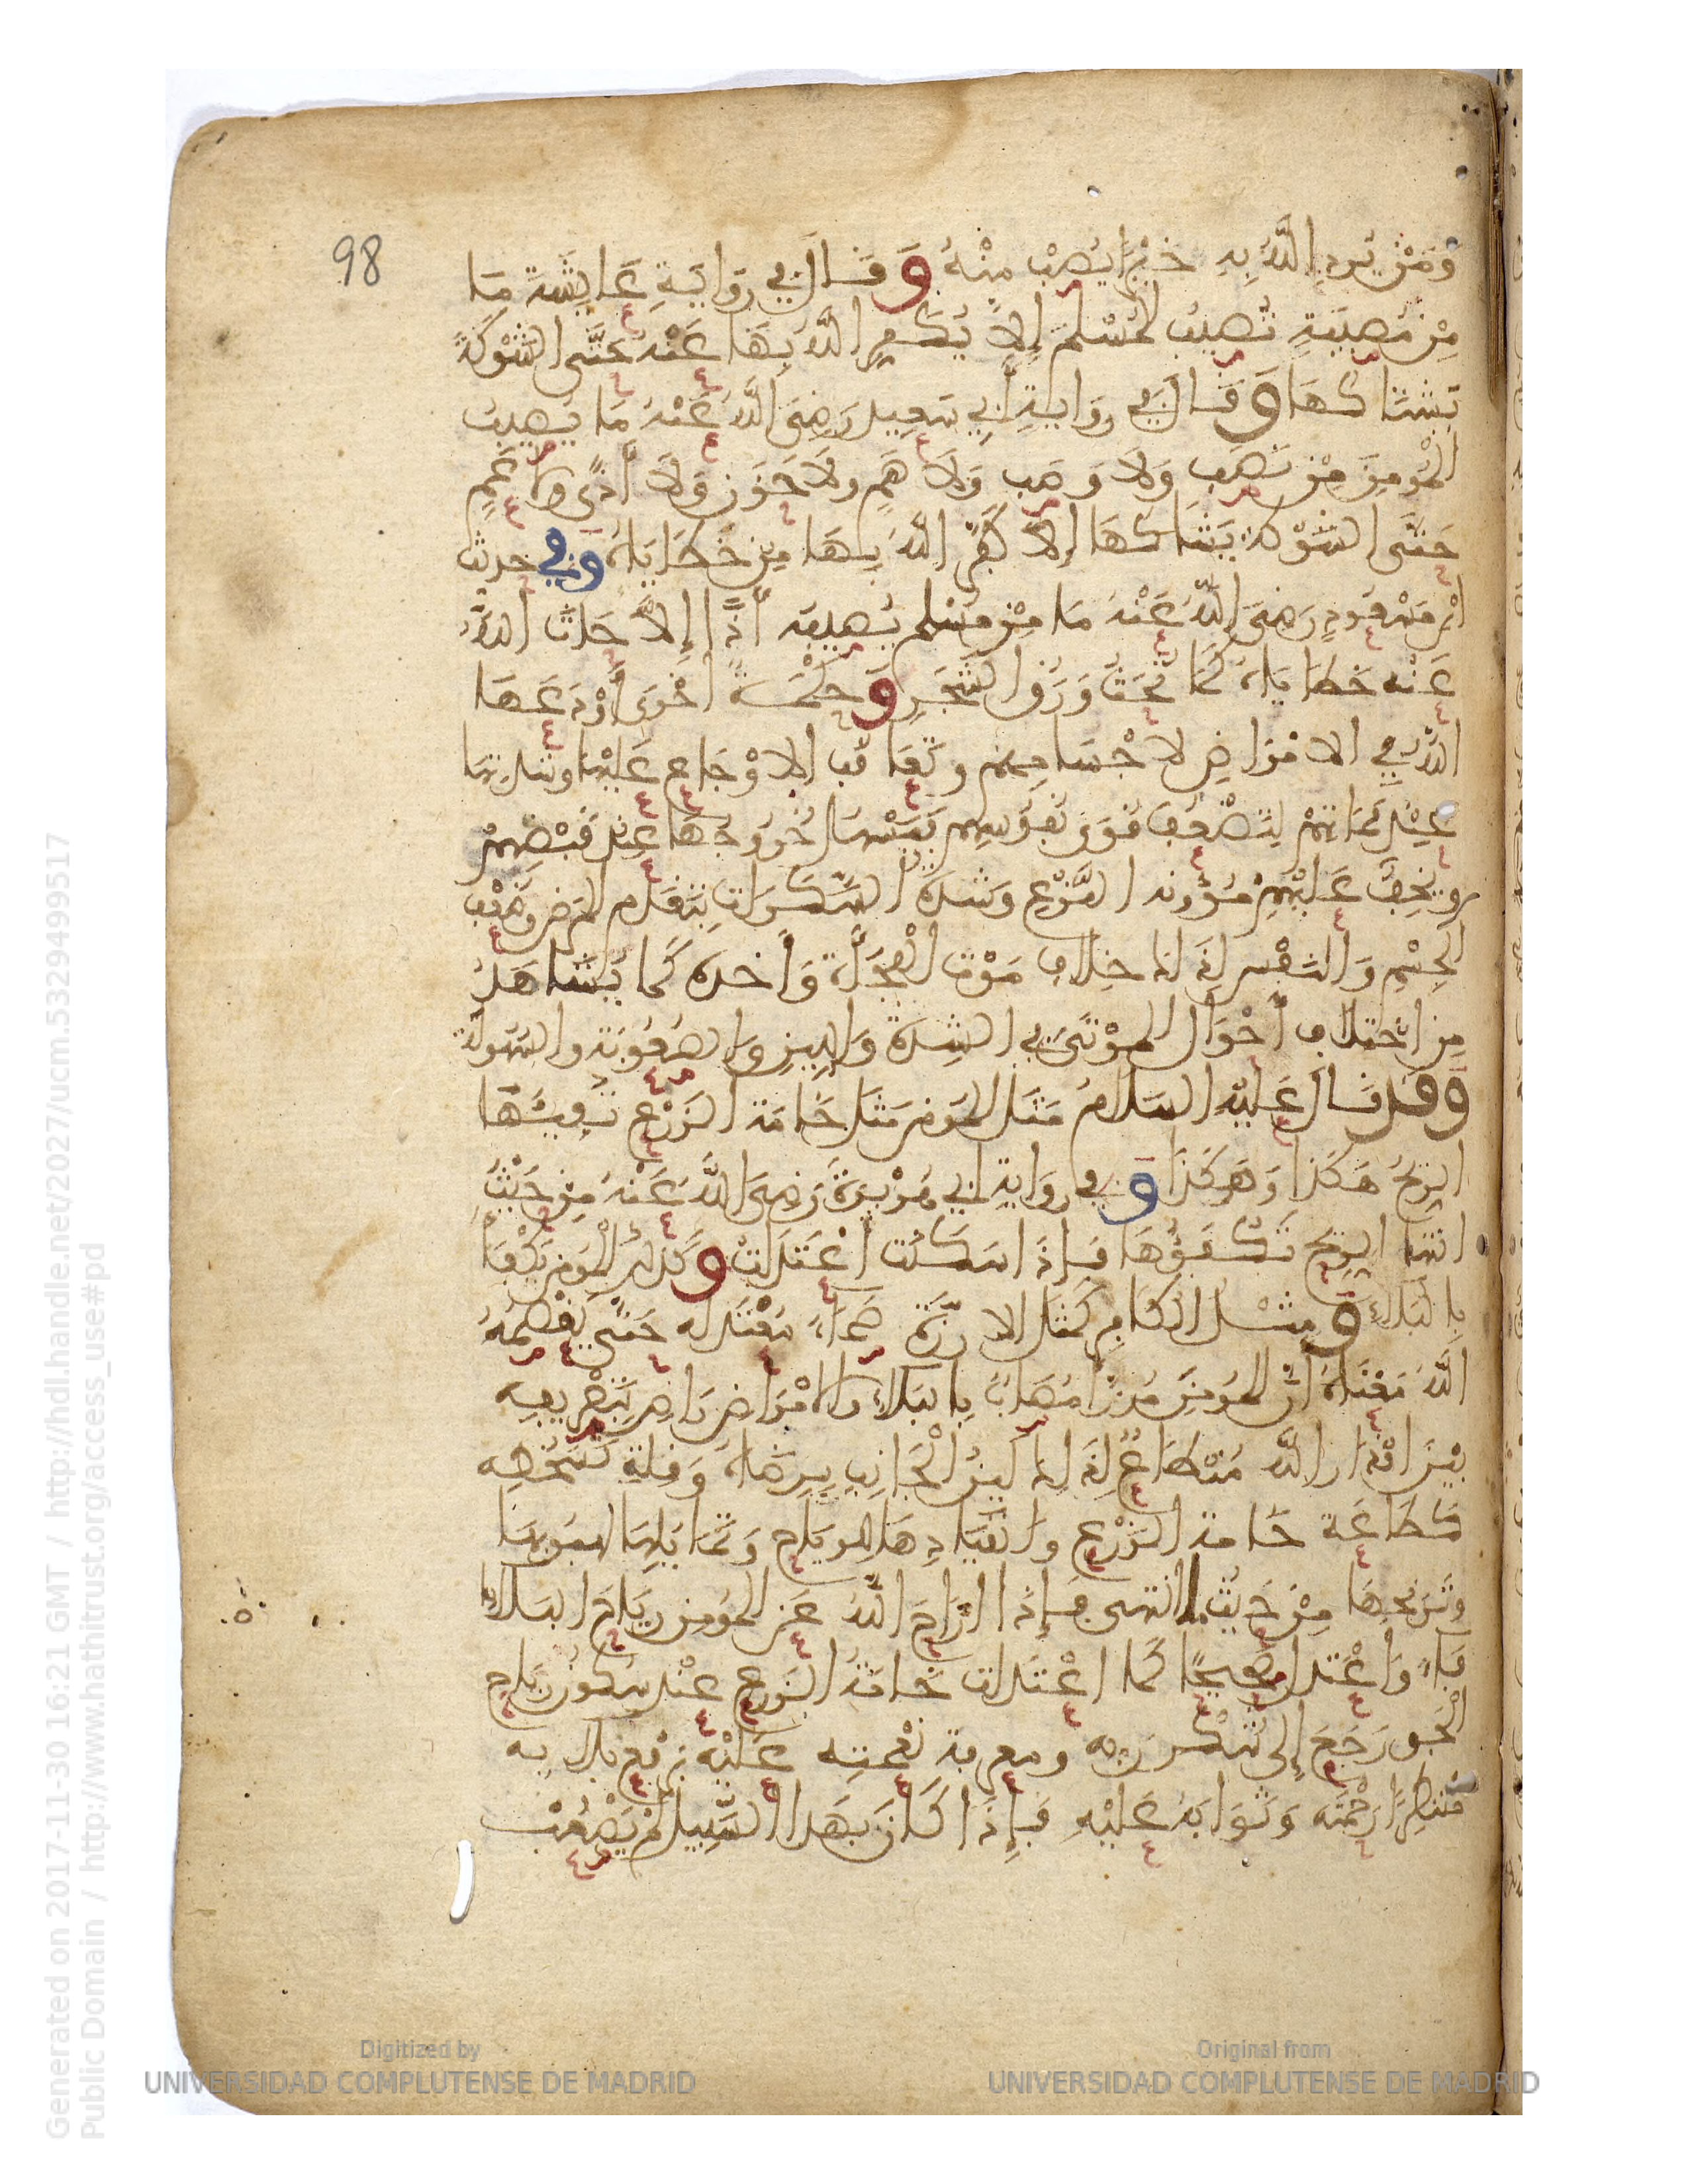 98
وَمَنْ يُرِدِ اللَّهُ بِهِ خَيْرًا يُصِبْ مِنْهُ وَقَالَ فِي رِوَايَةِ عَايِشَةَ مَا
مِنْ مُصِيبَةٍ تُصِيبُ الْمُسْلِمَ إِلَّا يُكَفِّرُ اللَّهُ بِهَا عَنْهُ حَتَّى الشَّوْكَةَ
يُشَاكُهَا وَقَالَ فِي رِوَايَةِ أَبِي سَعِيدٍ رَضِيَ اللَّهُ عَنْهُ مَا يُصِيبُ
الْمُومِنَ مِنْ نَصَبٍ وَلَا وَصَبٍ وَلَا هَمٍّ وَلَا حَزَنٍ وَلَا أَذًى وَلَا غَمٍّ
حَتَّى الشَّوْكَةُ يُشَاكُهَا إِلَّا كَفَّرَ اللَّهُ بِهَا مِنْ خَطَايَاهُ وَفِي حديث
ابْنِ مَسْعُودٍ رَضِيَ اللَّهُ عَنْهُ مَا مِنْ مُسْلِمٍ يُصِيبُهُ أَذًى إِلَّا حَاتَّ اللَّهُ
عَنْهُ خَطَايَاهُ كَمَا تُحَتُّ وَرَقُ الشَّجَرِ وَحِكْمَةٌ أُخْرَى أَوْدَعَهَا
اللَّهُ فِي الامْرَاضِ لاجْسَامِهِمْ وَتَعَاقُبِ الاوْجَاعِ عَلَيْهَا وشدتها
عِنْدَ مَمَاتِهِمْ لِتَضْعُفَ قُوَى نُفُوسِهِمْ فَيَسْهُلَ خُرُوجُهَا عِنْدَ قَبْضِهِمْ
ويَخِفَّ عَلَيْهِمْ مُؤْونة النَّزْعِ وَشِدَّةُ السَّكَرَاتِ بِتَقَدُّمِ المرضِ وَضَعْفِ
الجِسْمِ وَالنَّفْسِ لِذَلِكَ خِلَافَ مَوْتِ الْفَجْأَةِ وَأَخْذِهِ كَمَا يُشَاهَدُ
مِنِ اخْتِلَافِ أَحْوَالِ الْمَوْتَى فِي الشِّدَّةِ وَاللِّينِ وَالصُّعُوبَةِ وَالسُّهُولَةِ
وقد قَالَ عَلَيْهِ السَّلَامُ مَثَلُ المُومِنِ مَثَلُ خَامَةِ الزَّرْعِ تُفِيئُهَا
الرِّيحُ هَكَذَا وَهَكَذَا وَفِي رِوَايَةِ أَبِي هُرَيْرَةَ رَضِيَ اللَّهُ عَنْهُ مِنْ حَيْثُ
اتتها الرِّيحُ تَكْفَؤُهَا فَإِذَا سَكَنَتْ اعْتَدَلَتْ وَكَذَلِكَ الْمُومِنُ يُكْفَأُ
بِالْبَلَاءِ وَمَثَلُ الْكَافِرِ كَمَثَلِ الارْزَةِ صَمَّاءَ مُعْتَدِلَةً حَتَّى يَقْصِمَهُ
اللَّهُ مَعْنَاهُ أَنَّ الْمُومِنَ مُرَزَّأٌ مُصَابٌ بِالْبَلَاءِ وَالامْرَاضِ رَاضٍ بِتَصْرِيفِهِ
بَيْنَ أَقْدَارِ اللَّهِ مُنْطَاعٌ لِذَلِكَ لَيِّنُ الْجَانِبِ بِرِضَاهُ وَقِلَّةِ سَخَطِهِ
كَطَاعَةِ خَامَةِ الزَّرْعِ وَانْقِيَادِهَا لِلرِّيَاحِ وَتَمَايُلِهَا لِهُبُوبِهَا
وَتَرَنُّحِهَا مِنْ حَيْثُ مَا اتتها فَإِذَا أَزَاحَ اللَّهُ عَنِ الْمُومِنِ رِيَاحَ الْبَلَايَا
فَاءَ وَاعْتَدَلَ صَحِيحًا كَمَا اعْتَدَلَتْ خَامَةُ الزَّرْعِ عِنْدَ سُكُونِ رِيَاحِ
الْجَوِّ رَجَعَ إِلَى شُكْرِ رَبِّهِ وَمَعْرِفَةِ نِعْمَتِهِ عَلَيْهِ بِرَفْعِ بَلَايِهِ
مُنْتَظِرًا رَحْمَتَهُ وَثَوَابَهُ عَلَيْهِ فَإِذَا كَانَ بِهَذَا السَّبِيلِ لَمْ يَصْعُبْ
Generated on 2017-11-30 16:21 GMT / http://hdl.handle.net/2027/ucm.5329499517
Public Domain / http://www.hathitrust.org/access_use#pd
Digitized by
UNIVERSIDAD COMPLUTENSE DE MADRID
Original from
UNIVERSIDAD COMPLUTENSE DE MADRID